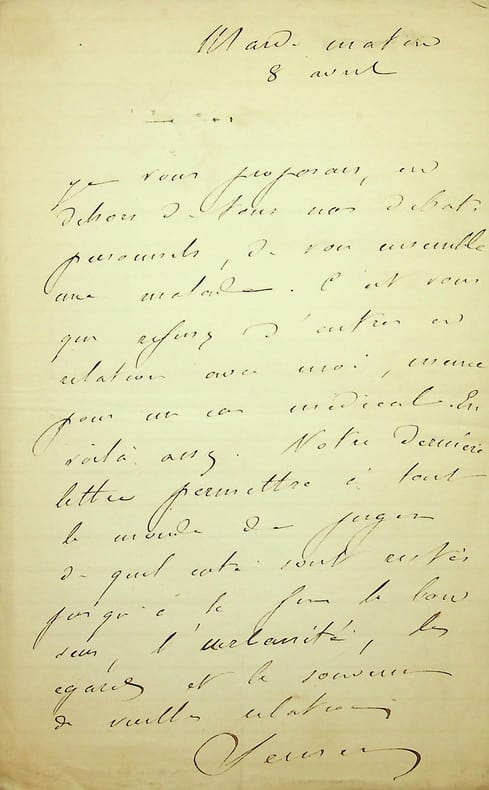 Mardi matin
8 avril
Je vous proposais, en
dehors de tous nos débats
personnels, de voir ensemble
une malade. C'est vous
qui refusez d'entrer en
relation avec moi, même
pour un cas médical. En
voilà assez. Notre dernière
lettre permettra à tout
le monde de juger
de quel côté sont restés
jusqu'à la fin le bon
sens, l'urbanité, les
égards et le souvenir
de vieilles relations